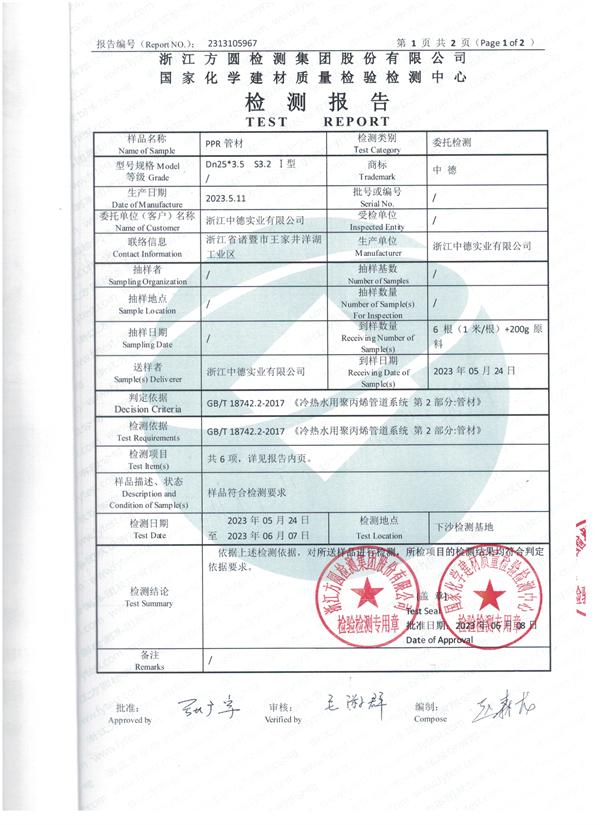 报告编号（Report NO.）： 2313105967 第 1 页 共 2 页（Page 1 of 2 ）
浙江方圆检测集团股份有限公司
国家化学建材质量检验检测中心
检 测 报 告
TEST REPORT
样品名称 PPR 管材 检测类别 委托检测
Name of Sample Test Category
型号规格 Model Dn25*3.5 S3.2 Ⅰ型 商标 中 德
等级 Grade / Trademark
生产日期 2023.5.11 批号或编号 /
Date of Manufacture Serial No.
委托单位（客户）名称 浙江中德实业有限公司 受检单位 /
Name of Customer Inspected Entity
联络信息 浙江省诸暨市王家井洋湖 生产单位 浙江中德实业有限公司
Contact Information 工业区 Manufacturer
抽样者 / 抽样基数 /
Sampling Organization Number of Samples
抽样地点 / 抽样数量 /
Sample Location Number of Sample(s)
For Inspection
抽样日期 / 到样数量 6 根（1 米/根）+200g 原
Sampling Date Receiving Number of 料
Sample(s)
送样者 浙江中德实业有限公司 到样日期 2023 年 05 月 24 日
Sample(s) Deliverer Receiving Date of
Sample(s)
判定依据 GB/T 18742.2-2017 《冷热水用聚丙烯管道系统 第 2 部分:管材》
Decision Criteria
检测依据 GB/T 18742.2-2017 《冷热水用聚丙烯管道系统 第 2 部分:管材》
Test Requirements
检测项目 共 6 项，详见报告内页。
Test Item(s)
样品描述、状态 样品符合检测要求
Description and
Condition of Sample(s)
检测日期 2023 年 05 月 24 日 检测地点 下沙检测基地
Test Date 至 2023 年 06 月 07 日 Test Location
依据上述检测依据，对所送样品进行检测，所检项目的检测结果均符合判定
依据要求。
检测结论
Test Summary
浙江方圆检测集团股份有限公司
检验检测专用章
国家化学建材质量检验检测中心
检验检测专用章
（盖 章）
Test Seal
批准日期：2023 年 06 月 08 日
Date of Approval
备注 /
Remarks
批准： 审核： 编制：
Approved by Verified by Compose